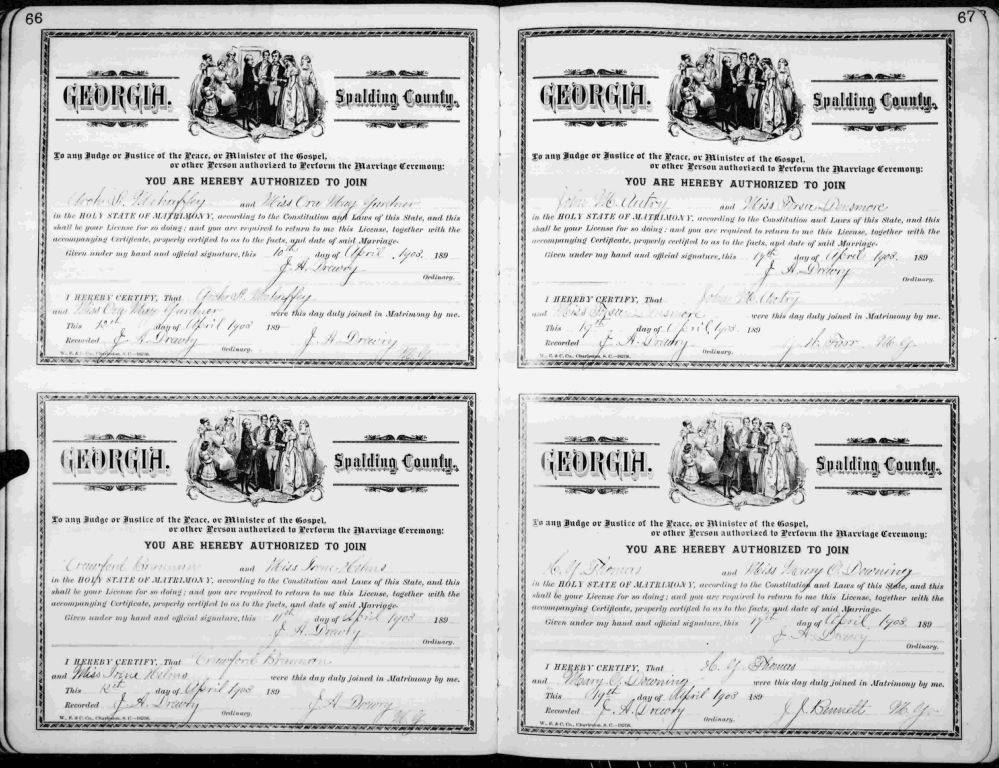 66
GEORGIA. Spalding County.
To any Judge or Justice of the Peace, or Minister of the Gospel,
or other Person authorized to Perform the Marriage Ceremony:
YOU ARE HEREBY AUTHORIZED TO JOIN
and Miss Ora May Gardner
in the HOLY STATE OF MATRIMONY, according to the Constitution and Laws of this State, and this
shall be your License for so doing; and you are required to return to me this License, together with the
accompanying Certificate, properly certified to as to the facts, and date of said Marriage.
Given under my hand and official signature, this 10th day of April 1903. 189
J. H. Drewry
Ordinary.
I HEREBY CERTIFY, That
and Miss Ora May Gardner were this day duly joined in Matrimony by me.
This day of April 1903 189
Recorded J. H. Drewry J. H. Drewry
Ordinary. M.G.
W., E. & C. Co., Charleston, S. C.
GEORGIA. Spalding County.
To any Judge or Justice of the Peace, or Minister of the Gospel,
or other Person authorized to Perform the Marriage Ceremony:
YOU ARE HEREBY AUTHORIZED TO JOIN
Crawford Brannon and Miss Irene Helms
in the HOLY STATE OF MATRIMONY, according to the Constitution and Laws of this State, and this
shall be your License for so doing; and you are required to return to me this License, together with the
accompanying Certificate, properly certified to as to the facts, and date of said Marriage.
Given under my hand and official signature, this 11th day of April 1903 189
J. H. Drewry
Ordinary.
I HEREBY CERTIFY, That Crawford Brannon
and Miss Irene Helms were this day duly joined in Matrimony by me.
This 12th day of April 1903 189
Recorded J. H. Drewry J. H. Drewry
Ordinary. M.G.
W., E. & C. Co., Charleston, S. C.
67
GEORGIA. Spalding County.
To any Judge or Justice of the Peace, or Minister of the Gospel,
or other Person authorized to Perform the Marriage Ceremony:
YOU ARE HEREBY AUTHORIZED TO JOIN
John M. Autry and Miss Densmore
in the HOLY STATE OF MATRIMONY, according to the Constitution and Laws of this State, and this
shall be your License for so doing; and you are required to return to me this License, together with the
accompanying Certificate, properly certified to as to the facts, and date of said Marriage.
Given under my hand and official signature, this 19th day of April 1903. 189
J. H. Drewry
Ordinary.
I HEREBY CERTIFY, That John M. Autry
and Miss Densmore were this day duly joined in Matrimony by me.
This 19th day of April 1903 189
Recorded J. H. Drewry Farr M.G.
Ordinary.
W., E. & C. Co., Charleston, S. C.
GEORGIA. Spalding County.
To any Judge or Justice of the Peace, or Minister of the Gospel,
or other Person authorized to Perform the Marriage Ceremony:
YOU ARE HEREBY AUTHORIZED TO JOIN
H. Y. Thomas and Miss Mary O. Downing
in the HOLY STATE OF MATRIMONY, according to the Constitution and Laws of this State, and this
shall be your License for so doing; and you are required to return to me this License, together with the
accompanying Certificate, properly certified to as to the facts, and date of said Marriage.
Given under my hand and official signature, this 19th day of April 1903. 189
J. H. Drewry
Ordinary.
I HEREBY CERTIFY, That H. Y. Thomas
and Mary O. Downing were this day duly joined in Matrimony by me.
This 19th day of April 1903 189
Recorded J. H. Drewry J. J. Bennett M.G.
Ordinary.
W., E. & C. Co., Charleston, S. C.